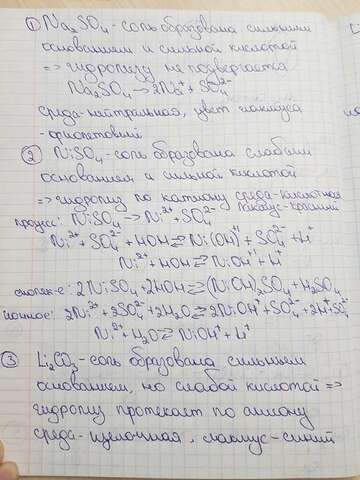 ① Na₂SO₄-соль образована сильным
основанием и сильной кислотой
=> гидролизу не подвергается
Na₂SO₄→2Na⁺+SO₄²⁻
среда-нейтральная, цвет лакмуса
-фиолетовый
② NiSO₄-соль образована слабым
основанием и сильной кислотой
=> гидролиз по катиону среда-кислотная
лакмус-красный
процесс: NiSO₄→Ni²⁺+SO₄²⁻
Ni²⁺+SO₄²⁻+HOH⇄Ni(OH)⁺+SO₄²⁻+H⁺
Ni²⁺+HOH⇄NiOH⁺+H⁺
2NiSO₄+2HOH⇄(NiOH)₂SO₄+H₂SO₄
ионное: 2Ni²⁺+2SO₄²⁻+2H₂O⇄2NiOH⁺+SO₄²⁻+2H⁺+SO₄²⁻
Ni²⁺+H₂O⇄NiOH⁺+H⁺
③ Li₂CO₃-соль образована сильным
основанием, но слабой кислотой =>
гидролиз протекает по аниону
среда-щелочная, лакмус-синий